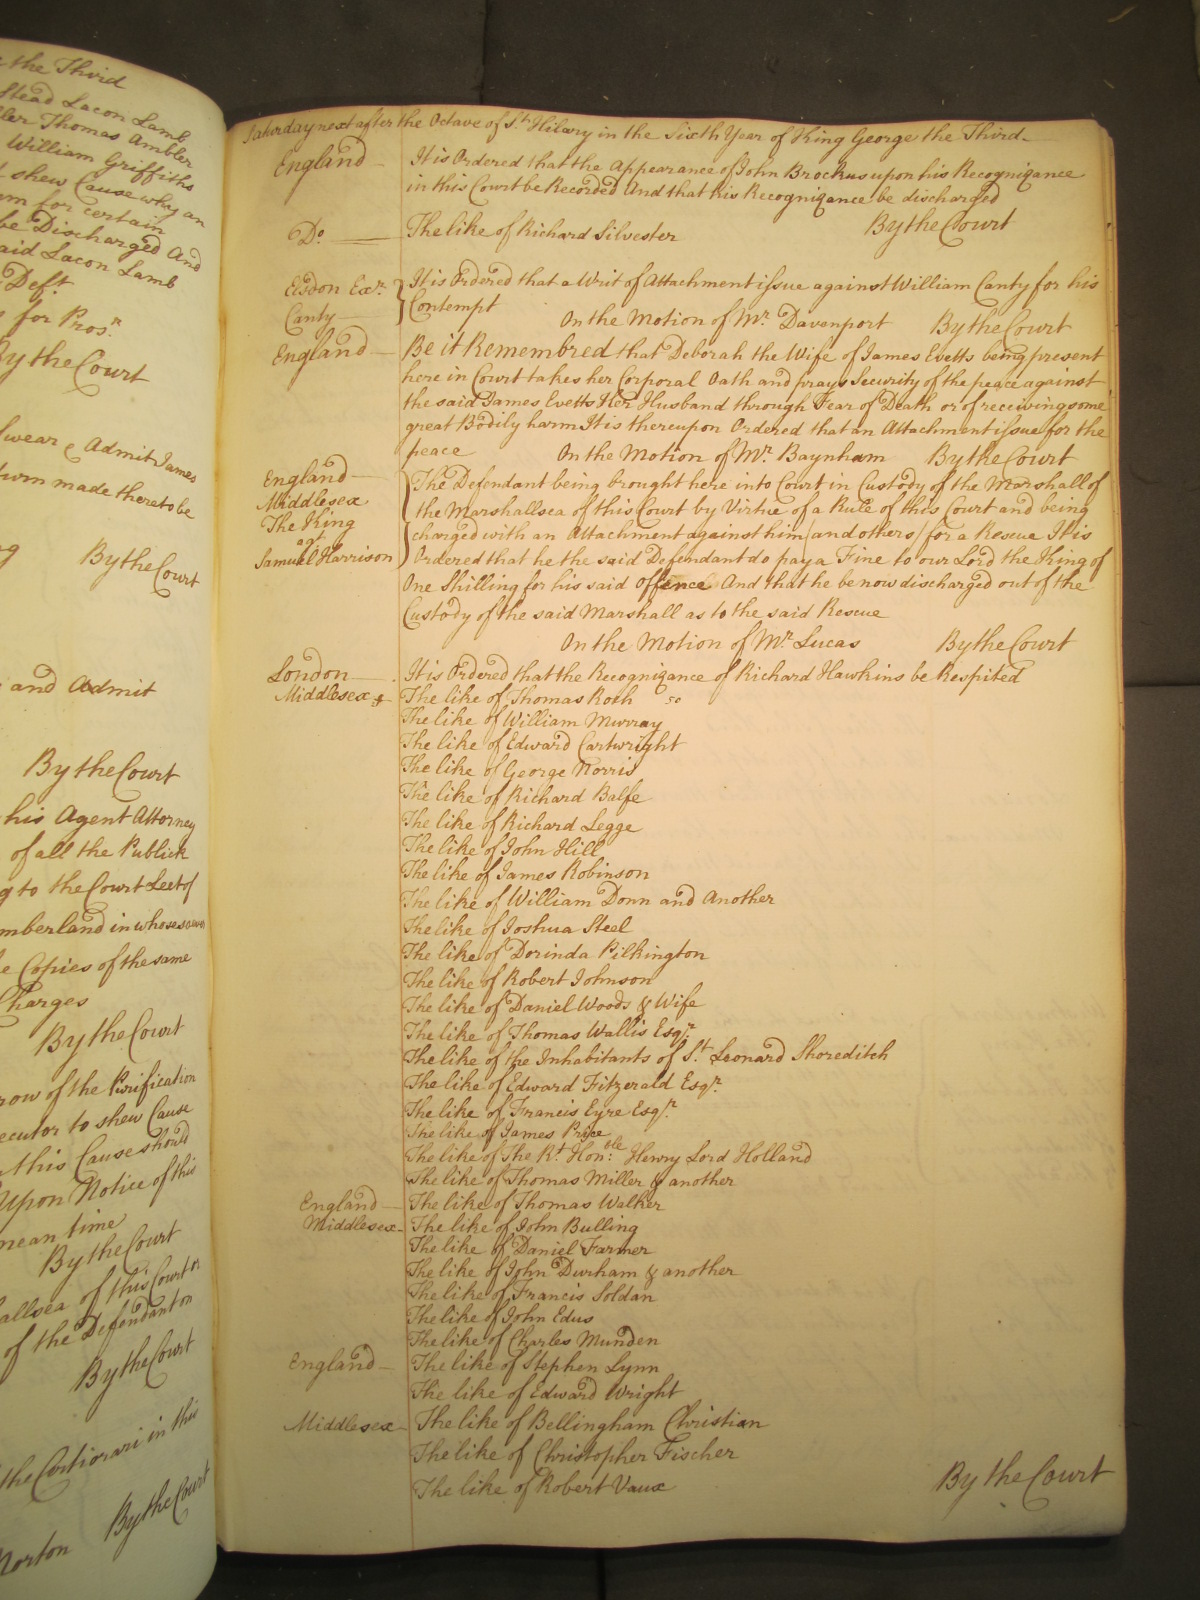 the Third
stead Lacon Lamb
ler Thomas Ambler
William Griffiths
shew Cause why an
for certain
be Discharged And
said Lacon Lamb
Deft.
for Prosr.
By the Court
swear & Admit James
turn made thereto be
By the Court
and Admit
By the Court
his Agent Attorney
of all the Publick
to the Court Leet of
mberland in whose
Copies of the same
Charges
By the Court
row of the Purification
ecutor to shew Cause
this Cause should
upon Notice of this
mean time
By the Court
allsea of this Court
of the Defendant on
By the Court
the Certiorari in this
By the Court
Norton
Saturday next after the Octave of St. Hilary in the Sixth Year of King George the Third
England It is Ordered that the Appearance of John Brockus upon his Recognizance
in this Court be Recorded And that his Recognizance be discharged
By the Court
Do The like of Richard Silvester
Elsdon Exr. It is Ordered that a Writ of Attachment issue against William Canty for his
Canty Contempt On the Motion of Mr. Davenport By the Court
England Be it Remembred that Deborah the Wife of James Evetts being present
here in Court takes her Corporal Oath and prays Security of the peace against
the said James Evetts Her Husband through Fear of Death or of receiving some
great Bodily harm It is thereupon Ordered that an Attachment issue for the
peace On the Motion of Mr. Baynham By the Court
England The Defendant being brought here into Court in Custody of the Marshall of
Middlesex the Marshallsea of this Court by Virtue of a Rule of this Court and being
The King charged with an Attachment against him (and others) for a Rescue It is
agt
Samuel Harrison Ordered that he the said Defendant do pay a Fine to our Lord the King of
One Shilling for his said offence And that he be now discharged out of the
Custody of the said Marshall as to the said Rescue
On the Motion of Mr. Lucas By the Court
London It is Ordered that the Recognizance of Richard Hawkins be Respited
Middlesex The like of Thomas Roth
The like of William Murray
The like of Edward Cartwright
The like of George Norris
The like of Richard Balfe
The like of Richard Legge
The like of John Hill
The like of James Robinson
The like of William Donn and Another
The like of Joshua Steel
The like of Dorinda Pilkington
The like of Robert Johnson
The like of Daniel Woods & Wife
The like of Thomas Wallis Esqr.
The like of the Inhabitants of St. Leonard Shoreditch
The like of Edward Fitzgerald Esqr.
The like of Francis Eyre Esqr.
The like of James Price
The like of The Rt. Honble. Henry Lord Holland
The like of Thomas Miller & another
England The like of Thomas Walker
Middlesex The like of John Bulling
The like of Daniel Farmer
The like of John Durham & another
The like of Francis Soldan
The like of John Edus
The like of Charles Munden
England The like of Stephen Lynn
The like of Edward Wright
Middlesex The like of Bellingham Christian
The like of Christopher Fischer
The like of Robert Vaux By the Court